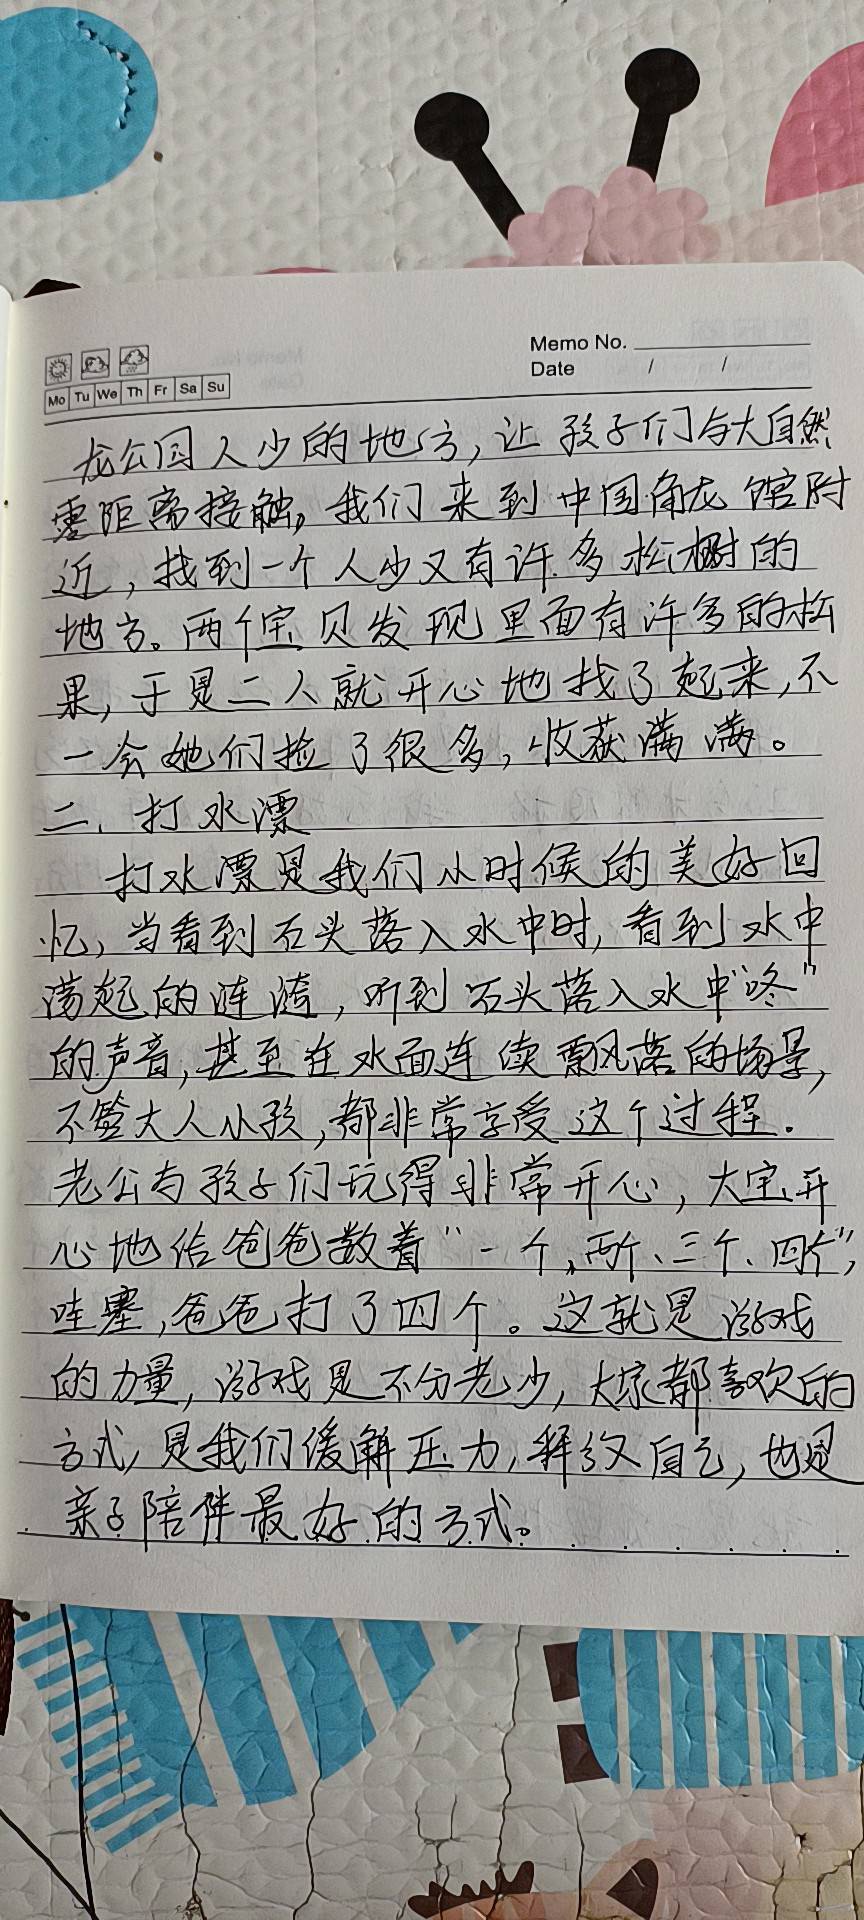 Memo No.
Date / /
Mo Tu We Th Fr Sa Su
龙公园人少的地方,让孩子们与大自然
零距离接触。我们来到中国角龙馆附
近,找到一个人少又有许多松树的
地方。两个宝贝发现里面有许多的松
果,于是二人就开心地找了起来,不
一会她们捡了很多,收获满满。
二、打水漂
打水漂是我们小时候的美好回
忆,当看到石头落入水中时,看到水中
荡起的涟漪,听到石头落入水中“咚”
的声音,甚至在水面连续飘落的场景,
不管大人小孩,都非常享受这个过程.
老公与孩子们玩得非常开心,大宝开
心地给爸爸数着“一个、两个、三个、四个”,
哇塞,爸爸打了四个。这就是游戏
的力量,游戏是不分老少,大家都喜欢的
方式,是我们缓解压力,释放自己,也是
亲子陪伴最好的方式。